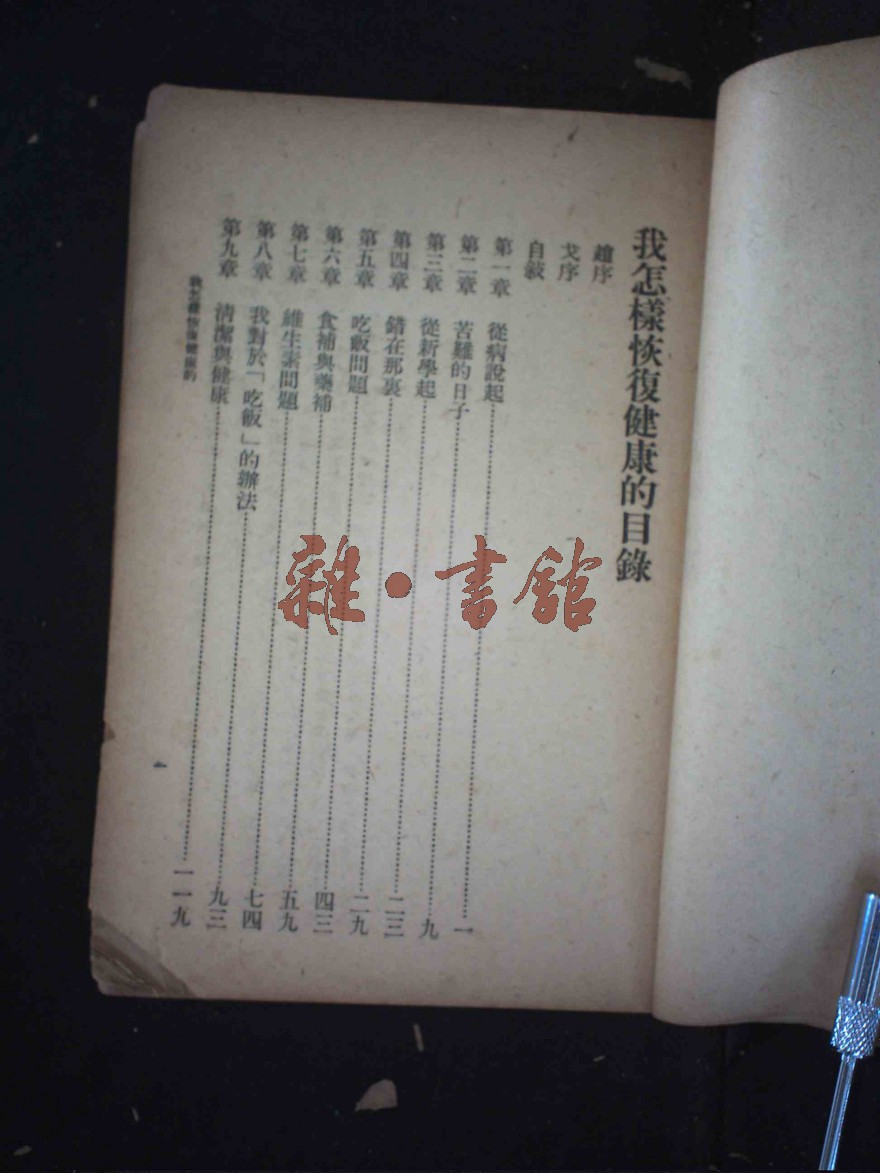 我怎樣恢復健康的目錄
趙序
戈序
自敍
第一章 從病說起……一
第二章 苦難的日子……九
第三章 從新學起……二三
第四章 錯在那裏……二九
第五章 吃飯問題……四三
第六章 食補與藥補……五九
第七章 維生素問題……七四
第八章 我對於「吃飯」的辦法……九三
第九章 清潔與健康……一一九
我怎樣恢復健康的
一
雜·書館